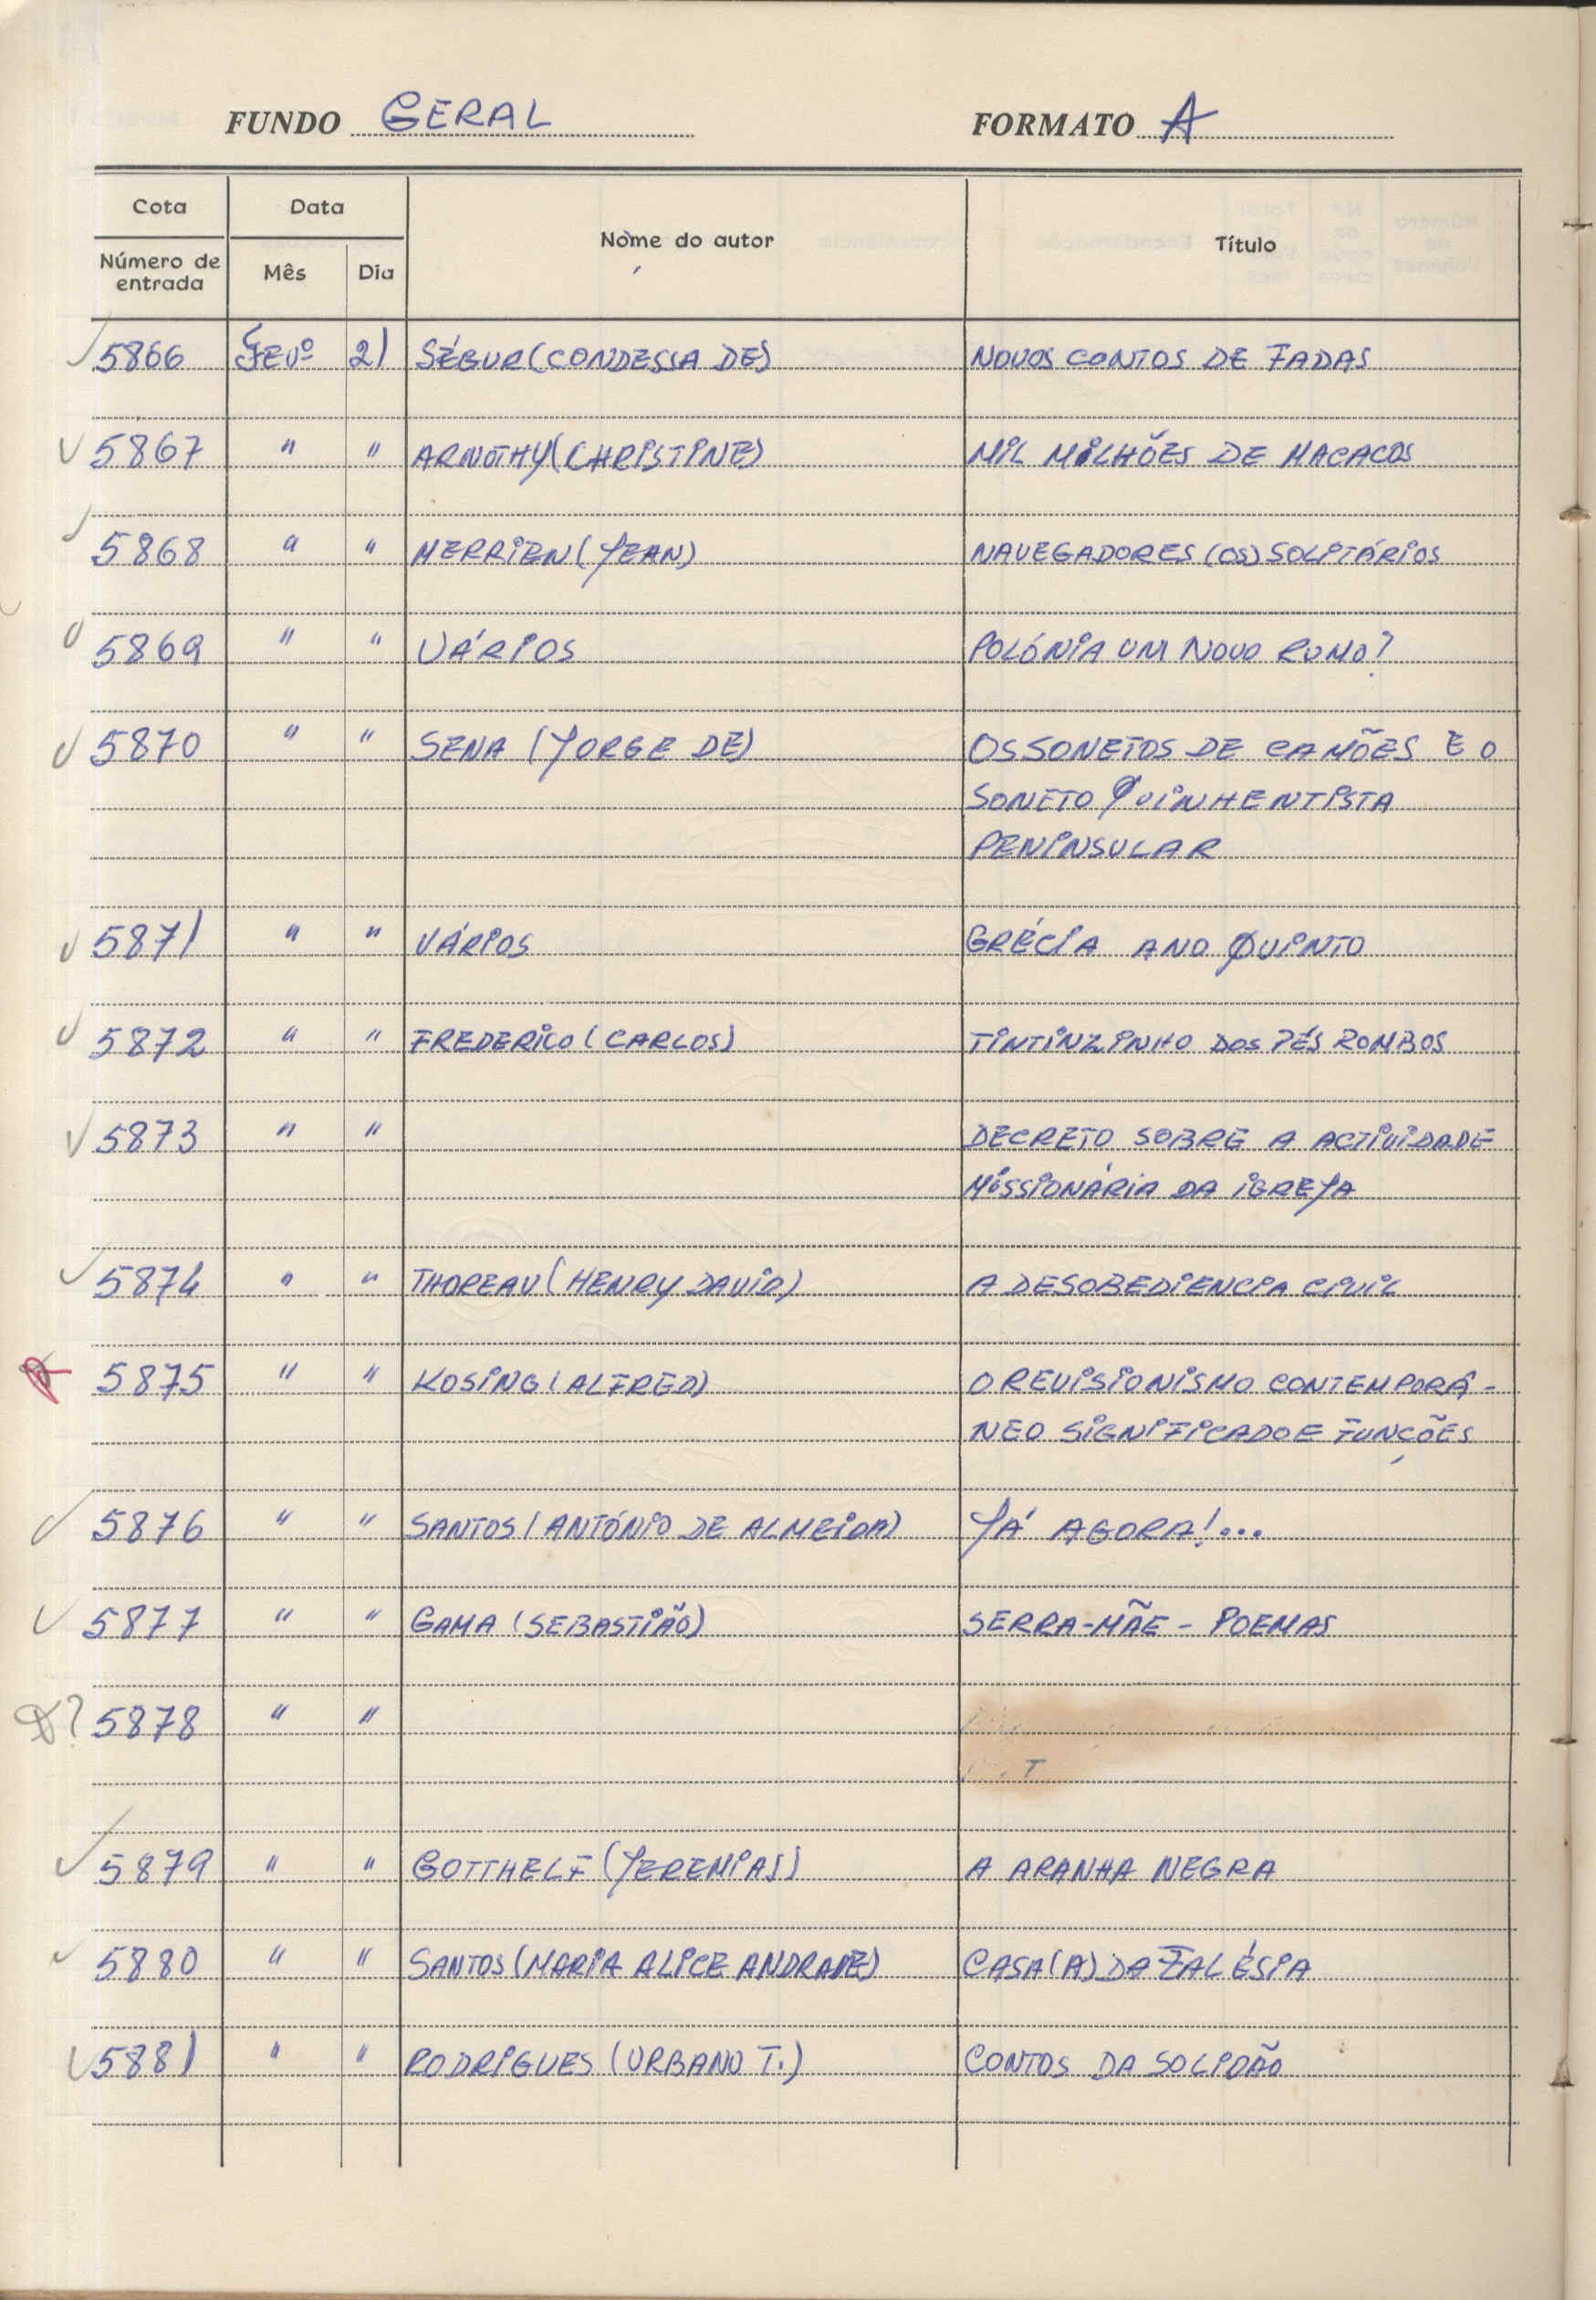 FUNDO GERAL FORMATO A
Cota Data Nome do autor Título
Número de entrada Mês Dia
5866 Fevº 21 SÉGUR (CONDESSA DE) NOVOS CONTOS DE FADAS
5867 " " ARNOTHY (CHRISTINE) MIL MILHÕES DE MACACOS
5868 " " MERRIEN (JEAN) NAVEGADORES (OS) SOLITÁRIOS
5869 " " VÁRIOS POLÓNIA UM NOVO RUMO?
5870 " " SENA (JORGE DE) OS SONETOS DE CAMÕES E O
SONETO QUINHENTISTA
PENINSULAR
5871 " " VÁRIOS GRÉCIA ANO QUINTO
5872 " " FREDERICO (CARLOS) TINTINZINHO DOS PÉS ROMBOS
5873 " " DECRETO SOBRE A ACTIVIDADE
MISSIONÁRIA DA IGREJA
5874 " " THOREAU (HENRY DAVID) A DESOBEDIENCIA CIVIL
5875 " " KOSING (ALFRED) O REVISIONISMO CONTEMPORÂ-
NEO SIGNIFICADO E FUNÇÕES
5876 " " SANTOS (ANTÓNIO DE ALMEIDA) JÁ AGORA!...
5877 " " GAMA (SEBASTIÃO) SERRA-MÃE - POEMAS
? 5878 " "
5879 " " GOTTHELF (JEREMIAS) A ARANHA NEGRA
5880 " " SANTOS (MARIA ALICE ANDRADE) CASA (A) DA FALÉSIA
5881 " " RODRIGUES (URBANO T.) CONTOS DA SOLIDÃO